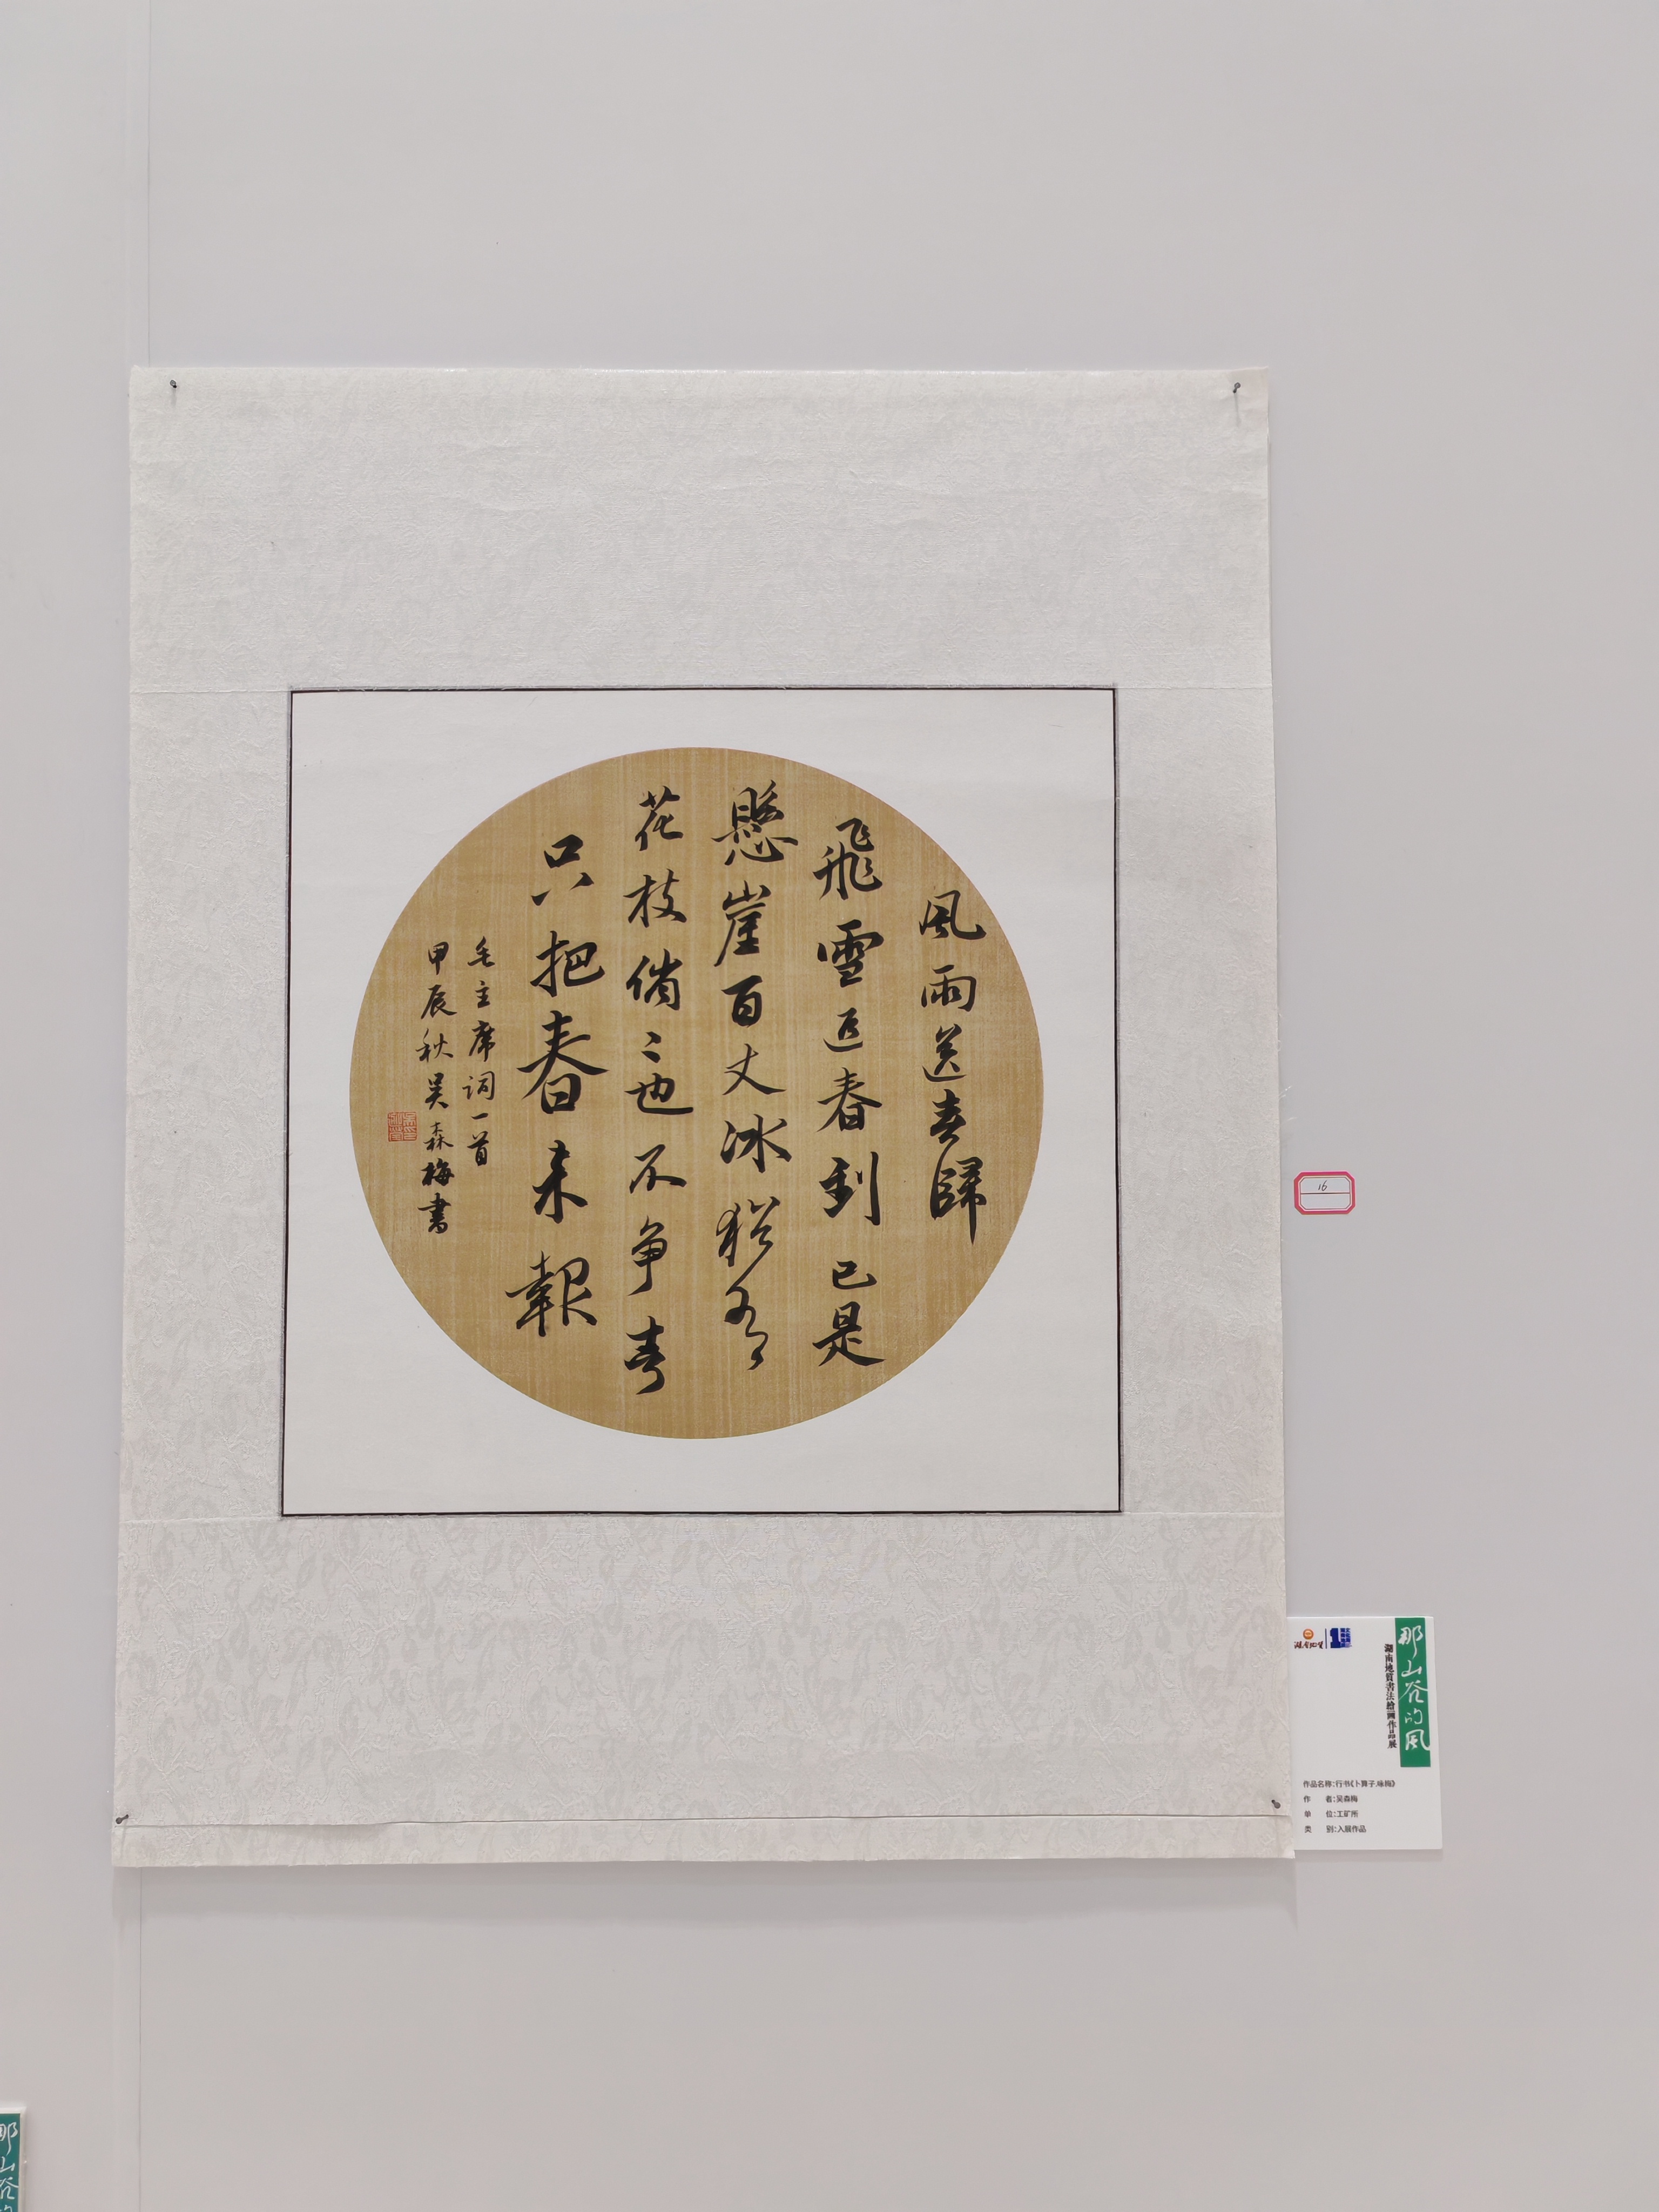 風雨送春歸
飛雪迎春到已是
懸崖百丈冰猶有
花枝俏〻也不争春
只把春来報
毛主席词一首
甲辰秋吴森梅書
16
那山谷的风
湖南地質書法繪畫作品展
作品名称:行书《卜算子.咏梅》
作 者:吴森梅
单 位:工矿所
类 别:入展作品
那山谷的